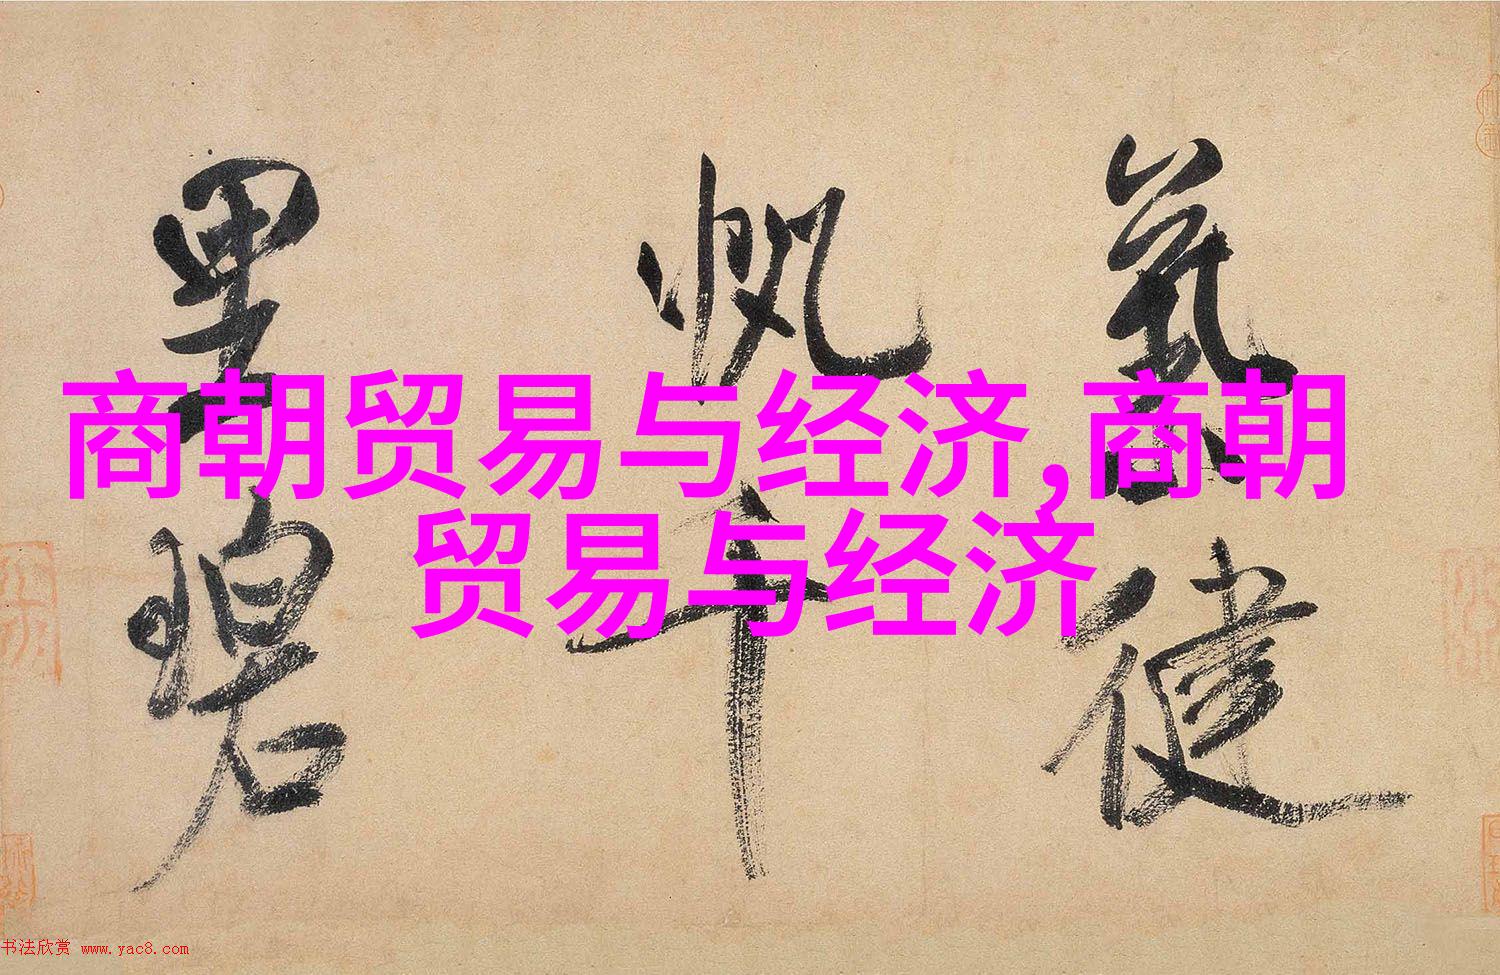 商朝贸易与经济,商朝
贸易与经济
健
帆
千
里
碧
书法欣赏 www.yac8.com